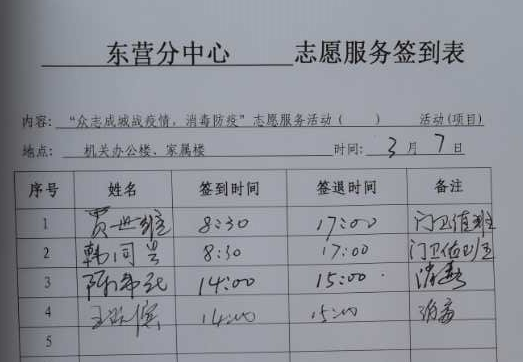 东营分中心 志愿服务签到表
内容: “众志成城战疫情，消毒防疫”志愿服务活动 ( ) 活动(项目)
地点: 机关办公楼、家属楼 时间: 3 月 7 日
序号 姓名 签到时间 签退时间 备注
1 贾世 8:30 17:00 门卫值班
2 韩同 8:30 17:00 门卫值班
3 14:00 15:00 消毒
4 王 14:00 15:00 消毒
5